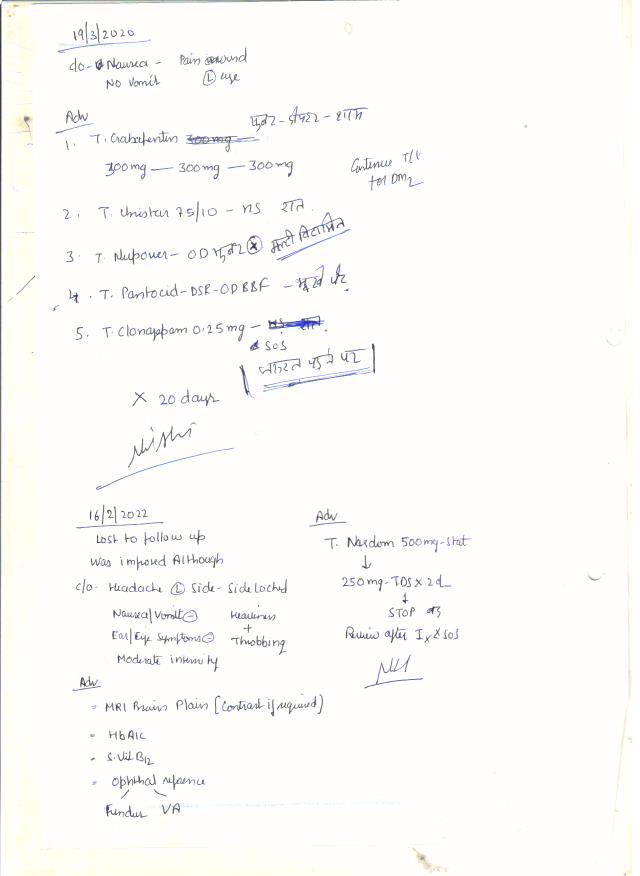 19/3/2020
c/o - Nausea - Pain around
No Vomit Ⓛ eye
Adv
सुबह - दोपहर - शाम
1. T. Gabapentin 300mg
300mg — 300mg — 300mg
Continue T/t
for DM2
2. T. Unistar 75/10 - HS रात
3. T. Nupower - OD सुबह मल्टी विटामिन
4. T. Pantocid-DSR-ODBBF - भूखे पेट
5. T. Clonappam 0.25mg - HS रात
SOS
जरूरत पड़ने पर
X 20 days
Nishi
16/2/2022
Lost to follow up
Was impoved Although
c/o- Headache Ⓛ Side - Side Locked
Nausea/Vomit ⊖ Heaviness
+
Ear/Eye Symptoms ⊖ Throbbing
Moderate intensity
Adv
= MRI Brain Plain [Contrast if required)
= HbA1c
= S. Vit B12
= Ophthal refernce
Fundus VA
Adv
T. Naxdom 500mg-Stat
↓
250mg-TDS X 2d
↓
STOP
Review after Ix X SOS